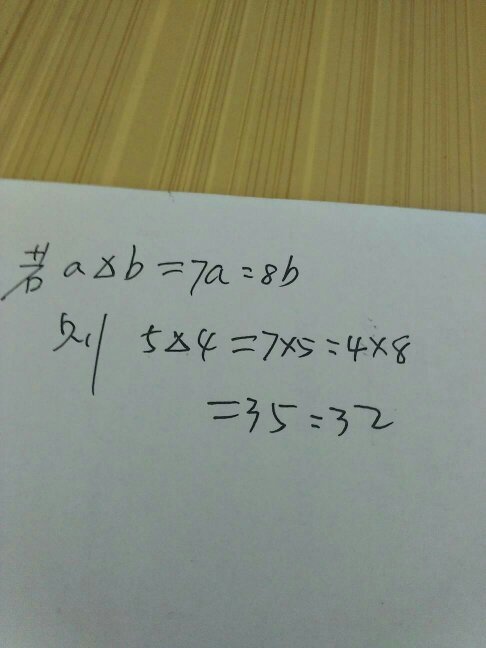 若 a△b=7a=8b
则 5△4=7×5=4×8
=35=32